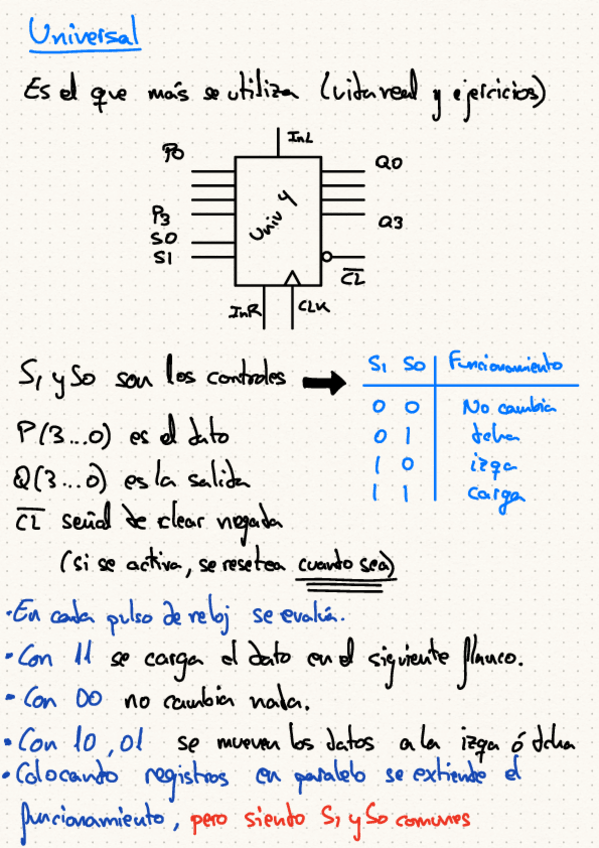 Universal
Es el que más se utiliza (vida real y ejercicios)
InL
P0
Q0
Univ 4
P3
Q3
S0
S1
CL
InR
CLK
S1 y S0 son los controles →
S1 S0 Funcionamiento
0 0 No cambia
0 1 dcha
1 0 izqa
1 1 carga
P(3...0) es el dato
Q(3...0) es la salida
CL señal de clear negada
(si se activa, se resetea cuando sea)
·En cada pulso de reloj se evalúa.
·Con 11 se carga el dato en el siguiente flanco.
·Con 00 no cambia nada.
·Con 10, 01 se mueven los datos a la izqa ó dcha
·Colocando registros en paralelo se extiende el
funcionamiento, pero siendo S1 y S0 comunes